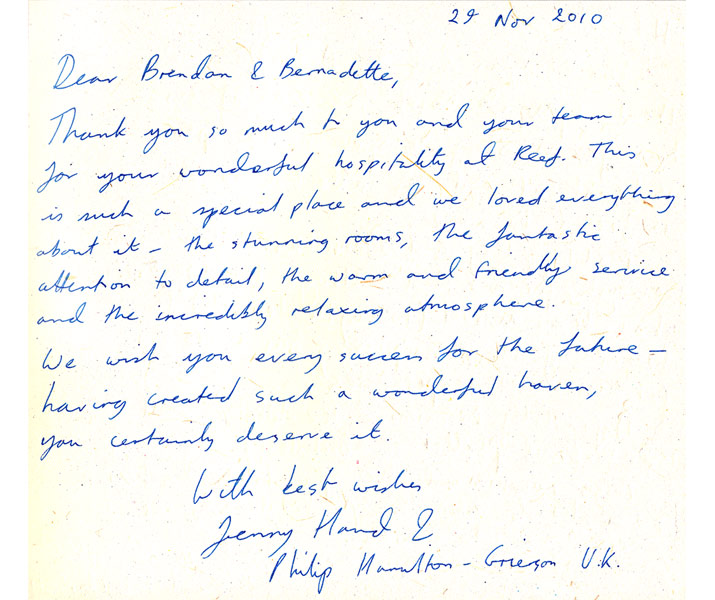 29 Nov 2010
Dear Brendan & Bernadette,
Thank you so much to you and your team
for your wonderful hospitality at Reef. This
is such a special place and we loved everything
about it – the stunning rooms, the fantastic
attention to detail, the warm and friendly service
and the incredibly relaxing atmosphere.
We wish you every success for the future –
having created such a wonderful haven,
you certainly deserve it.
With best wishes
Jenny Hand &
Philip Hamilton-Grierson U.K.